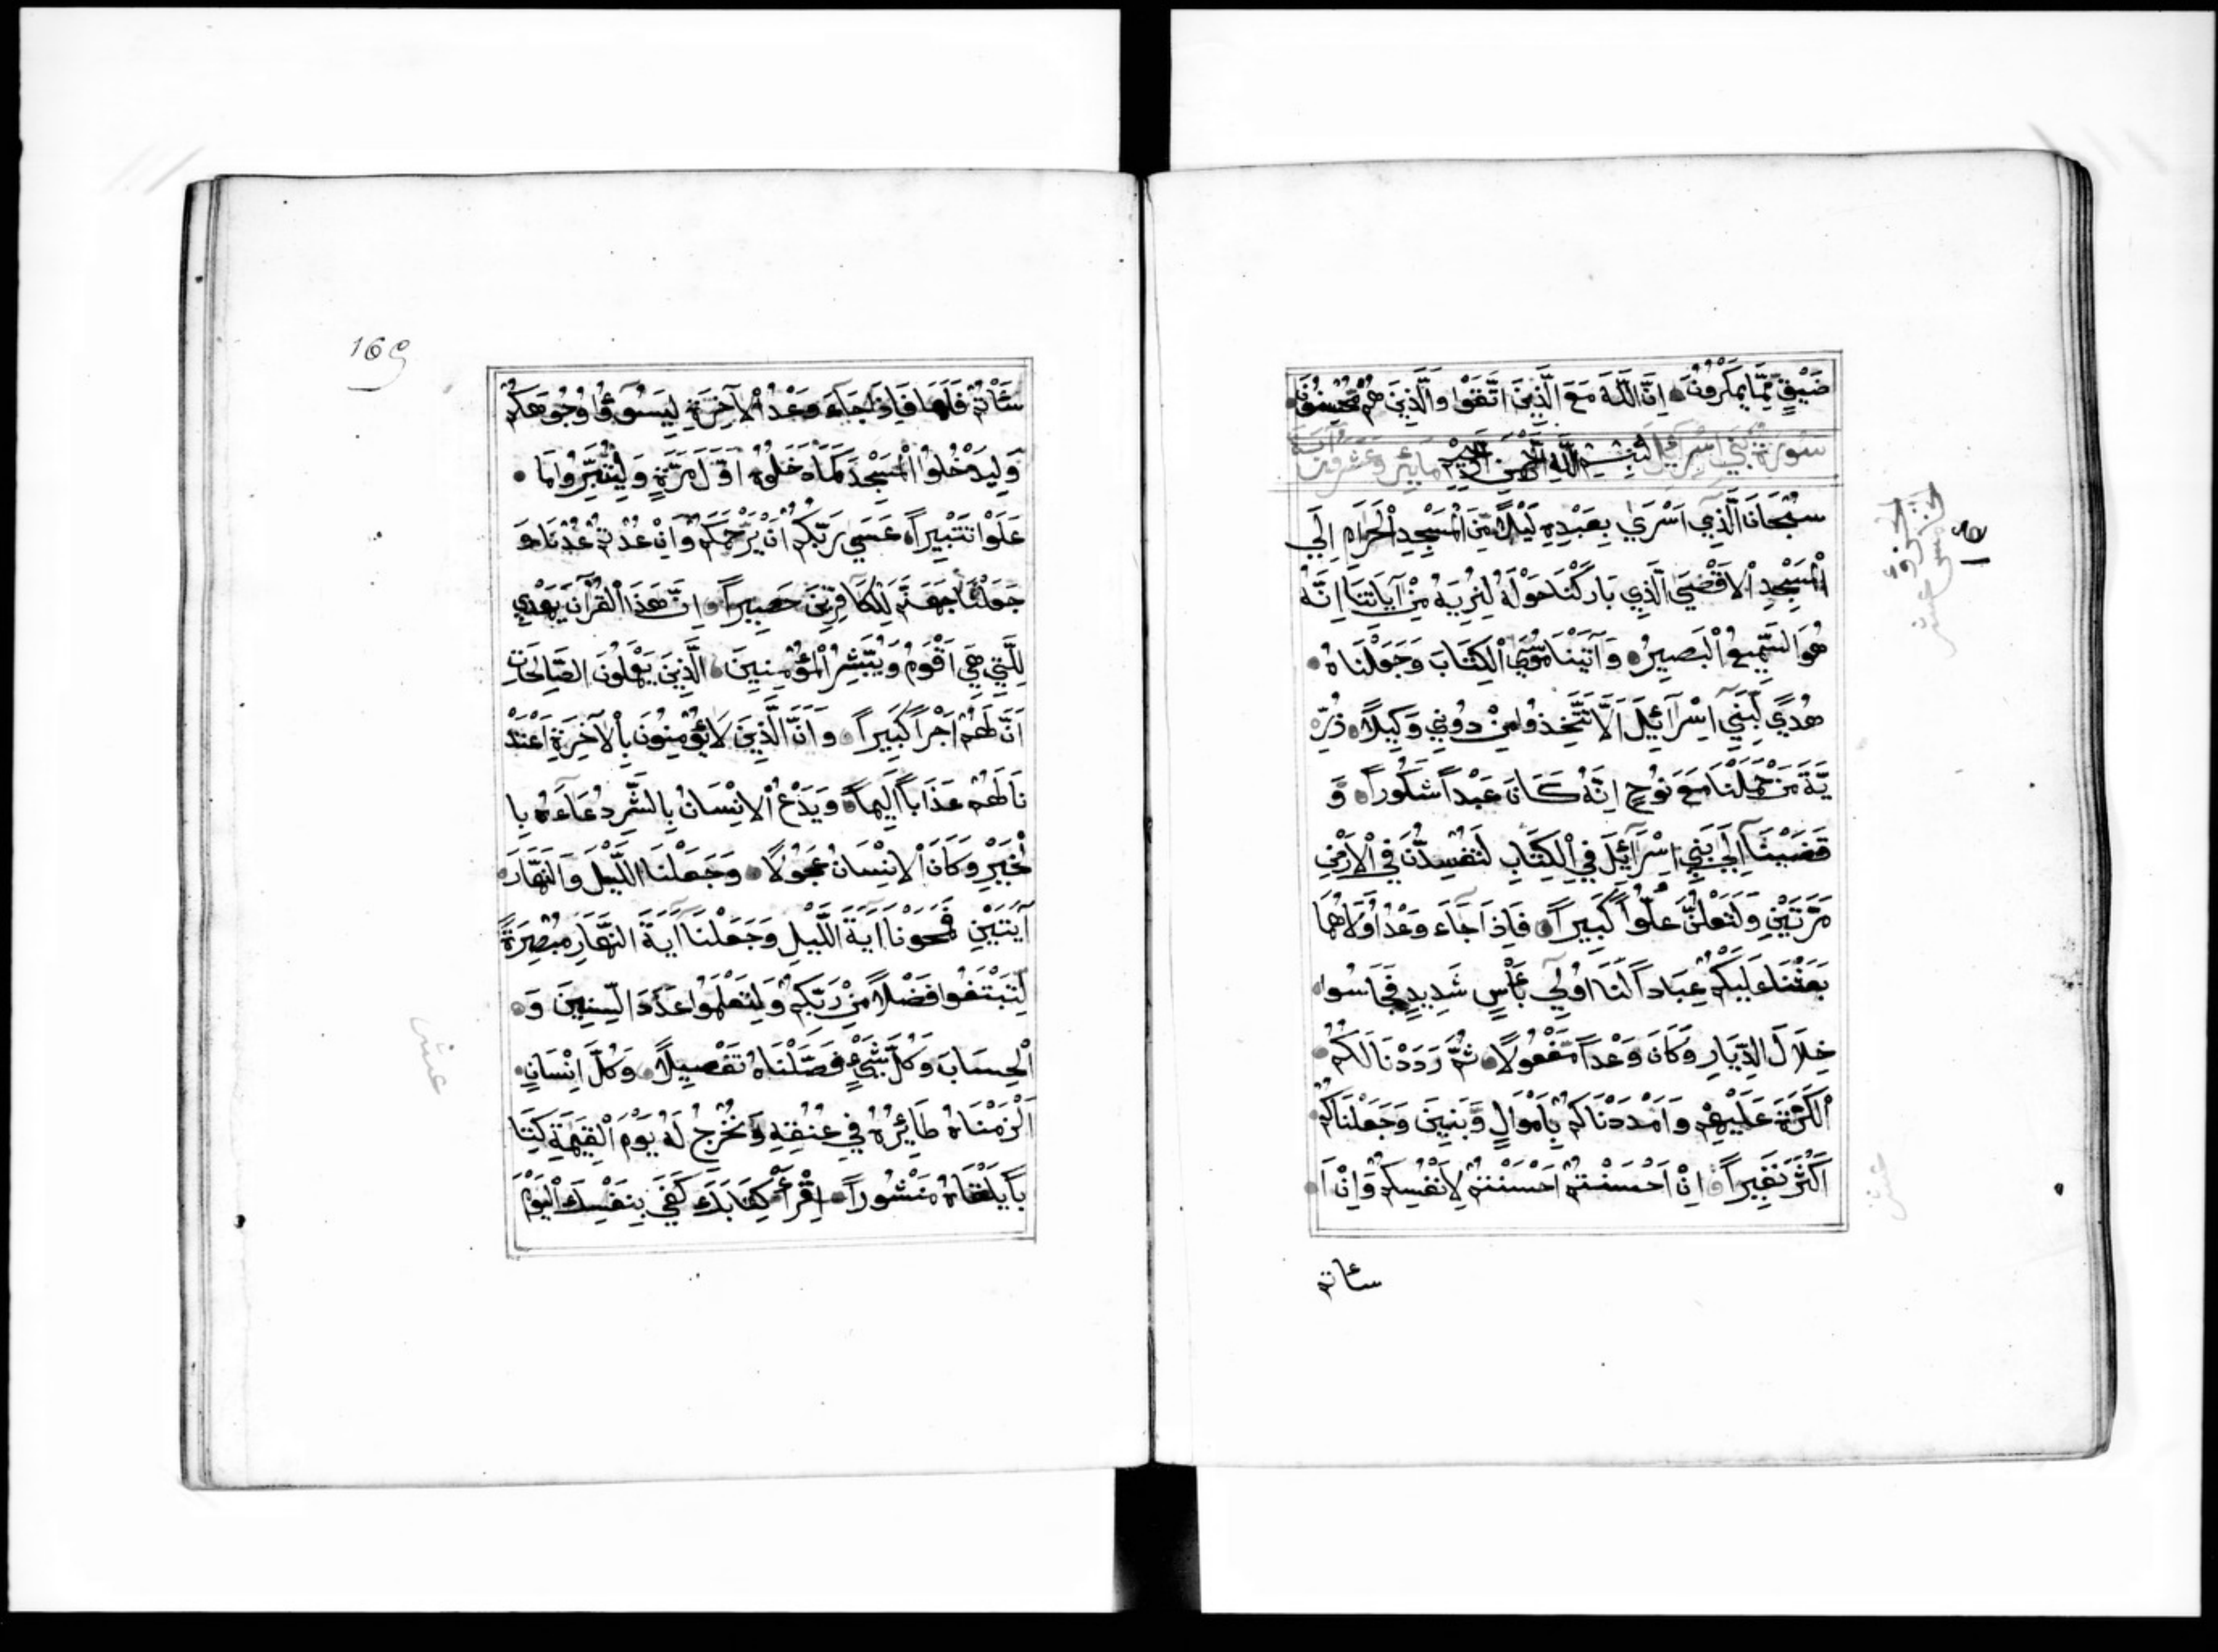 ضَيْقٍ مِّمَّا يَمْكُرُونَ اِنَّ اللّٰهَ مَعَ الَّذِينَ اتَّقَوْا وَالَّذِينَ هُمْ مُّحْسِنُونَ
سُورَةُ بَنِي اِسْرَآئِيلَ بِسْمِ اللّٰهِ الرَّحْمٰنِ الرَّحِيمِ مايئر وعشرون آية
سُبْحَانَ الَّذِي اَسْرَىٰ بِعَبْدِهِ لَيْلًا مِّنَ الْمَسْجِدِ الْحَرَامِ اِلَي
الْمَسْجِدِ الْاَقْصَي الَّذِي بَارَكْنَا حَوْلَهُ لِنُرِيَهُ مِنْ آيَاتِنَا اِنَّهُ
هُوَ السَّمِيعُ الْبَصِيرُ وَآتَيْنَا مُوسَي الْكِتَابَ وَجَعَلْنَاهُ
هُدًي لِّبَنِي اِسْرَآئِيلَ اَلَّا تَتَّخِذُوا مِنْ دُونِي وَكِيلًا ذُرِّ
يَّةَ مَنْ حَمَلْنَا مَعَ نُوحٍ اِنَّهُ كَانَ عَبْداً شَكُوراً وَ
قَضَيْنَا اِلَي بَنِي اِسْرَآئِيلَ فِي الْكِتَابِ لَتُفْسِدُنَّ فِي الْاَرْضِ
مَرَّتَيْنِ وَلَتَعْلُنَّ عُلُوّاً كَبِيراً فَاِذَا جَآءَ وَعْدُ اُولَاهُمَا
بَعَثْنَا عَلَيْكُمْ عِبَاداً لَّنَا اُولِي بَأْسٍ شَدِيدٍ فَجَاسُوا
خِلَالَ الدِّيَارِ وَكَانَ وَعْداً مَّفْعُولًا ثُمَّ رَدَدْنَا لَكُمُ
الْكَرَّةَ عَلَيْهِمْ وَاَمْدَدْنَاكُمْ بِاَمْوَالٍ وَّبَنِينَ وَجَعَلْنَاكُمْ
اَكْثَرَ نَفِيراً اِنْ اَحْسَنْتُمْ اَحْسَنْتُمْ لِاَنْفُسِكُمْ وَاِنْ اَ
سئاتم
عشر
169
سَئَاْتُمْ فَلَهَا فَاِذَا جَآءَ وَعْدُ الْآخِرَةِ لِيَسُوٓؤُا وُجُوهَكُمْ
وَلِيَدْخُلُوا الْمَسْجِدَ كَمَا دَخَلُوهُ اَوَّلَ مَرَّةٍ وَلِيُتَبِّرُوا مَا
عَلَوْا تَتْبِيراً عَسَي رَبُّكُمْ اَنْ يَّرْحَمَكُمْ وَاِنْ عُدْتُّمْ عُدْنَا وَ
جَعَلْنَا جَهَنَّمَ لِلْكَافِرِينَ حَصِيراً اِنَّ هَذَا الْقُرْآنَ يَهْدِي
لِلَّتِي هِيَ اَقْوَمُ وَيُبَشِّرُ الْمُؤْمِنِينَ الَّذِينَ يَعْمَلُونَ الصَّالِحَاتِ
اَنَّ لَهُمْ اَجْراً كَبِيراً وَاَنَّ الَّذِينَ لَا يُؤْمِنُونَ بِالْآخِرَةِ اَعْتَدْ
نَا لَهُمْ عَذَاباً اَلِيماً وَيَدْعُ الْاِنْسَانُ بِالشَّرِّ دُعَآءَهُ بِا
لْخَيْرِ وَكَانَ الْاِنْسَانُ عَجُولًا وَجَعَلْنَا اللَّيْلَ وَالنَّهَارَ
آيَتَيْنِ فَمَحَوْنَا آيَةَ اللَّيْلِ وَجَعَلْنَا آيَةَ النَّهَارِ مُبْصِرَةً
لِتَبْتَغُوا فَضْلًا مِّنْ رَبِّكُمْ وَلِتَعْلَمُوا عَدَدَ السِّنِينَ وَ
الْحِسَابَ وَكُلَّ شَيْءٍ فَصَّلْنَاهُ تَفْصِيلًا وَكُلَّ اِنْسَانٍ
اَلْزَمْنَاهُ طَآئِرَهُ فِي عُنُقِهِ وَنُخْرِجُ لَهُ يَوْمَ الْقِيٰمَةِ كِتَا
باً يَلْقَاهُ مَنْشُوراً اِقْرَأْ كِتَابَكَ كَفَي بِنَفْسِكَ الْيَوْمَ
عشر